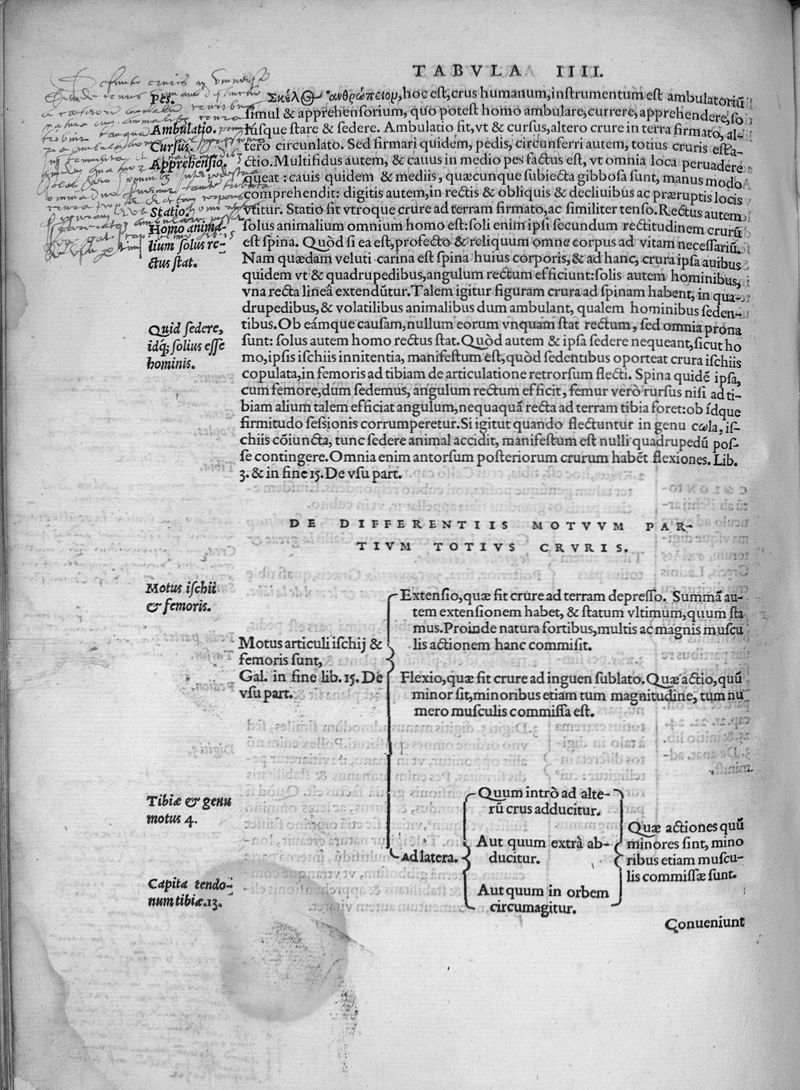 TABVLA IIII.
Σκέλος ἀνθρώπειον, hoc est, crus humanum, instrumentum est ambulatoriũ
simul & apprehensorium, quo potest homo ambulare, currere, apprehendere, so
lusque stare & sedere. Ambulatio fit, vt & cursus, altero crure in terra firmato, al-
tero circunlato. Sed firmari quidem, pedis, circunferri autem, totius cruris est a-
ctio. Multifidus autem, & cauus in medio pes factus est, vt omnia loca peruadere
queat: cauis quidem & mediis, quæcunque subiecta gibbosa sunt, manus modo
comprehendit: digitis autem, in rectis & obliquis & decliuibus ac præruptis locis
vtitur. Statio fit vtroque crure ad terram firmato, ac similiter tenso. Rectus autem
solus animalium omnium homo est: soli enim ipsi secundum rectitudinem crurũ
est spina. Quòd si ea est, profecto & reliquum omne corpus ad vitam necessariũ.
Nam quædam veluti carina est spina huius corporis, & ad hanc, crura ipsa auibus
quidem vt & quadrupedibus, angulum rectum efficiunt: solis autem hominibus,
vna recta linea extendũtur. Talem igitur figuram crura ad spinam habent, in qua-
drupedibus, & volatilibus animalibus dum ambulant, qualem hominibus seden-
tibus. Ob eámque causam, nullum eorum vnquam stat rectum, sed omnia prona
sunt: solus autem homo rectus stat. Quòd autem & ipsa sedere nequeant, sicut ho
mo, ipsis ischiis innitentia, manifestum est, quòd sedentibus oporteat crura ischiis
copulata, in femoris ad tibiam de articulatione retrorsum flecti. Spina quidẽ ipsa,
cum femore, dum sedemus, angulum rectum efficit, femur verò rursus nisi ad ti-
biam alium talem efficiat angulum, nequaquã recta ad terram tibia foret: ob idque
firmitudo sessionis corrumperetur. Si igitur quando flectuntur in genu cωla, is-
chiis cõiuncta, tunc sedere animal accidit, manifestum est nulli quadrupedũ pos-
se contingere. Omnia enim antorsum posteriorum crurum habẽt flexiones. Lib.
3. & in fine 15. De vsu part.
Pes.
Ambulatio.
Cursus.
Apprehensio.
Statio.
Homo anima-
lium solus re-
ctus stat.
Quid sedere,
idq; solius esse
hominis.
DE DIFFERENTIIS MOTVVM PAR-
TIVM TOTIVS CRVRIS.
Motus ischii
& femoris.
Motus articuli ischij &
femoris sunt,
Gal. in fine lib. 15. De
vsu part.
Extensio, quæ fit crure ad terram depresso. Summã au-
tem extensionem habet, & statum vltimum, quum sta
mus. Proinde natura fortibus, multis ac magnis muscu
lis actionem hanc commisit.
Flexio, quæ fit crure ad inguen sublato. Quæ actio, quũ
minor sit, minoribus etiam tum magnitudine, tum nu
mero musculis commissa est.
Tibiæ & genu
motus 4.
Capita tendo-
num tibiæ. 13.
Ad latera.
Quum intrò ad alte-
rũ crus adducitur.
Aut quum extrà ab-
ducitur.
Aut quum in orbem
circumagitur.
Quæ actiones quũ
minores sint, mino
ribus etiam muscu-
lis commissæ sunt.
Conueniunt